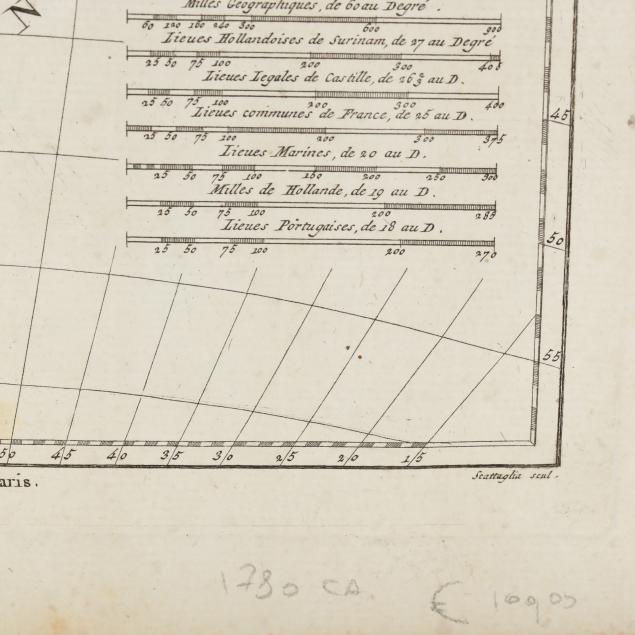 N
Milles Géographiques, de 60 au Degré.
60 120 180 240 300 600 900
Lieues Hollandoises de Surinam, de 27 au Degré
25 50 75 100 200 300 405
Lieues Legales de Castille, de 26 2/3 au D.
25 50 75 100 200 300 400
Lieues communes de France, de 25 au D.
25 50 75 100 200 300 375
45
Lieues Marines, de 20 au D.
25 50 75 100 150 200 250 300
Milles de Hollande, de 19 au D.
25 50 75 100 200 285
Lieues Portugaises, de 18 au D.
25 50 75 100 200 270
50
55
50 45 40 35 30 25 20 15
aris.
Scattaglia scul.
1780 CA.
€ 100,00